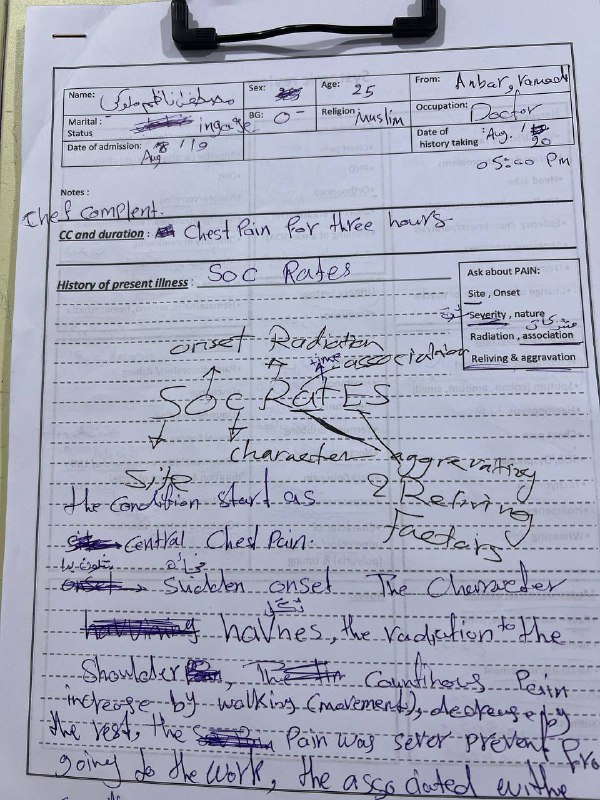 Name:
Sex:
Age: 25
From: Anbar, ramadi
Marital : Status
BG: O-
Religion Muslim
Occupation: Doctor
Date of admission: Aug
Date of history taking : Aug. 20
05:00 Pm
Notes :
Chef complent.
CC and duration : Chest Pain for three hours
History of present illness : Soc Rates
Ask about PAIN:
Site , Onset
Severity , nature
Radiation , association
Reliving & aggravation
onset Radiation
time association
SOC RatES
Site character aggrevating
2 Reliving
Factors
the condition start as
central Chest Pain.
Sudden onset The Character
the radiation to the
Shoulder , Countinous Pain
increase by walking (movement), decrease by
the rest, the Pain was sever prevent fro
going to the work, the assosiated withe